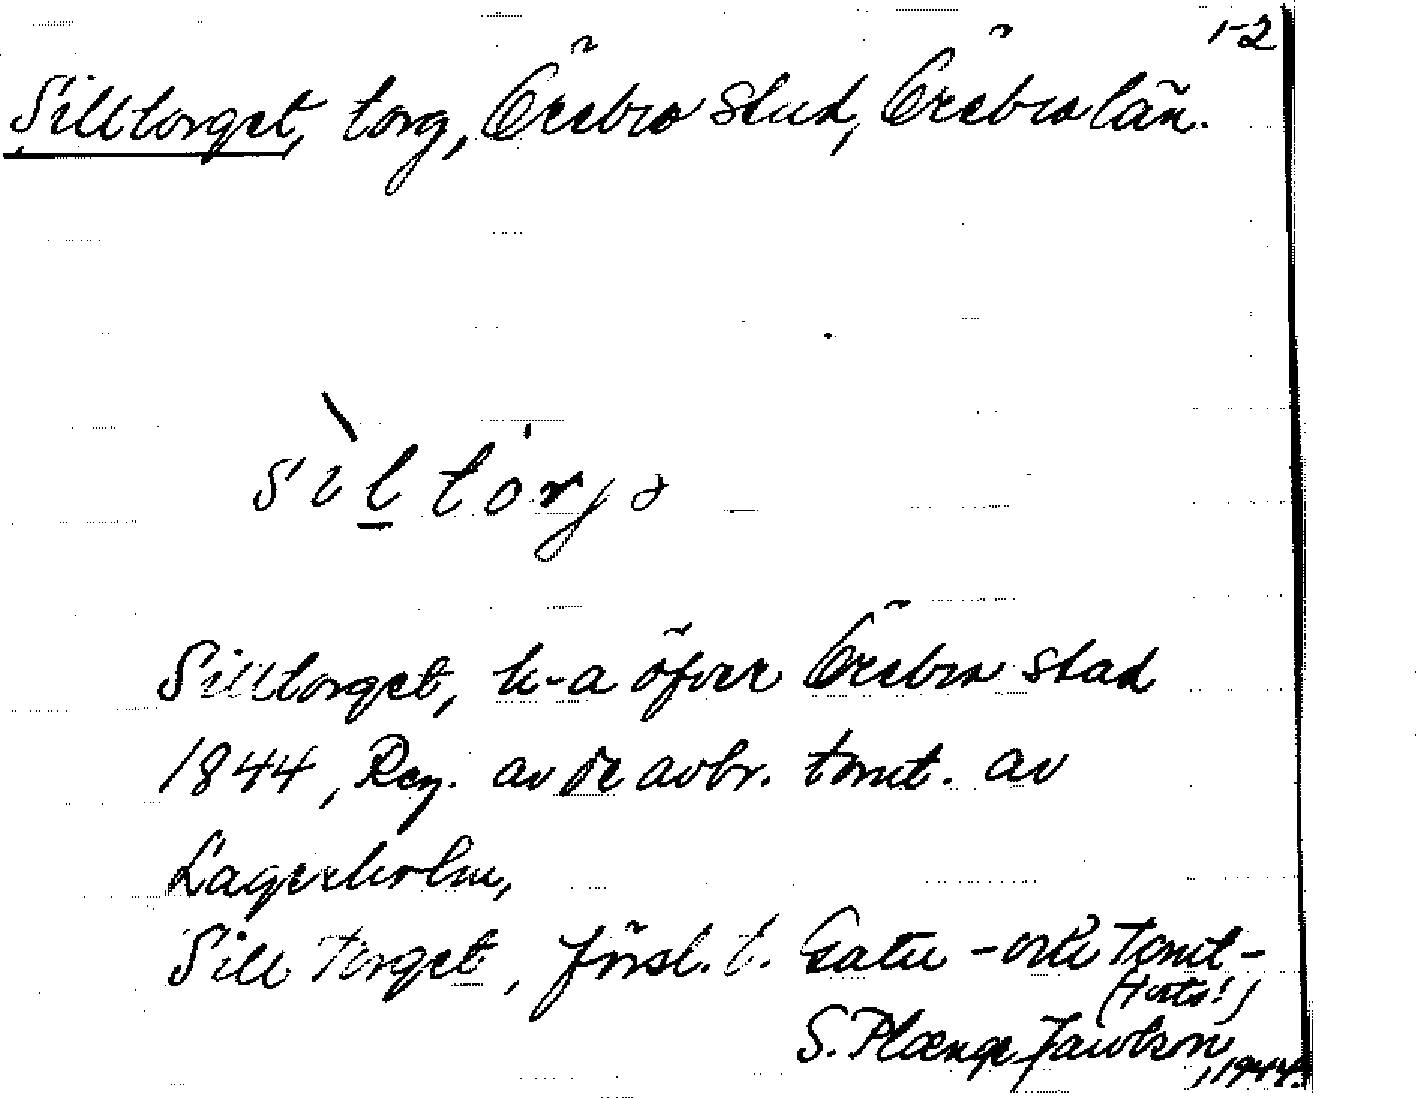 1-2
Silltorget, torg, Örebro stad, Örebro län.
sìltórjə
Silltorget, k-a öfver Örebro stad
1844, Reg. av de avbr. tomt. av
Lagerholm,
Sill Torget, försl. t. Gatu- och Tomt-
(Forts!)
S. Plænge Jacobson, 1944.